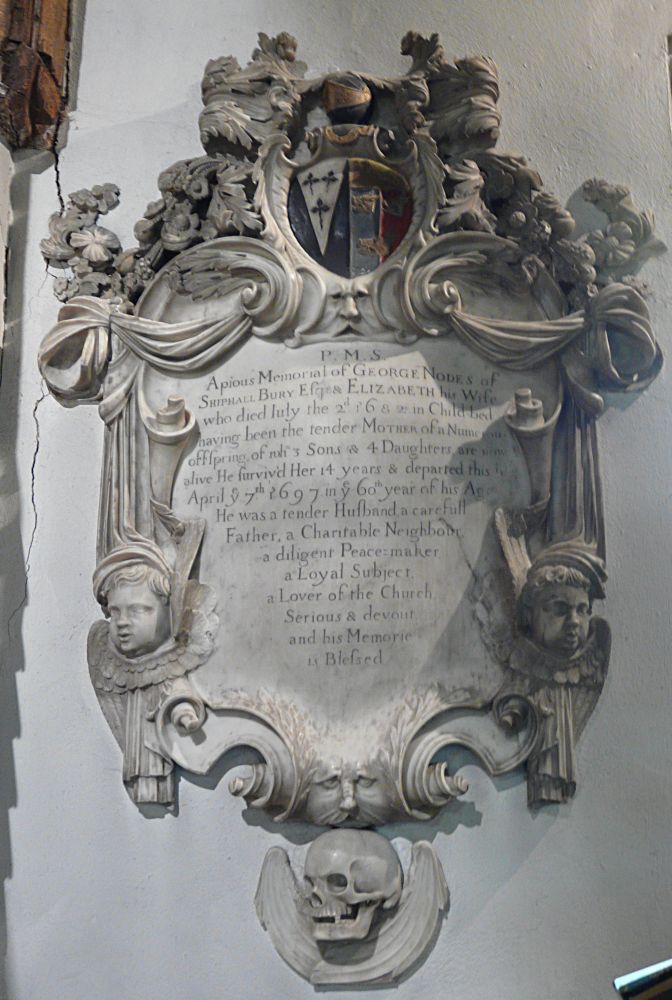 P. M. S.
A pious Memorial of GEORGE NODES of
SHIPHALL BURY Esqr. & ELIZABETH his Wife
who died July the 2d 1682 in Child bed
having been the tender MOTHER of a Numerous
offspring, of wch 3 Sons & 4 Daughters are now
alive He surviv'd HER 14 years & departed this
April ye 7th 1697 in ye 60th year of his Age
He was a tender Husband, a carefull
FATHER, a CHARITABLE NEIGHBOUR.
a diligent PEACE=MAKER
a LOYAL SUBJECT.
a LOVER of the CHURCH.
SERIOUS & devout.
and his MEMORIE
is Blessed